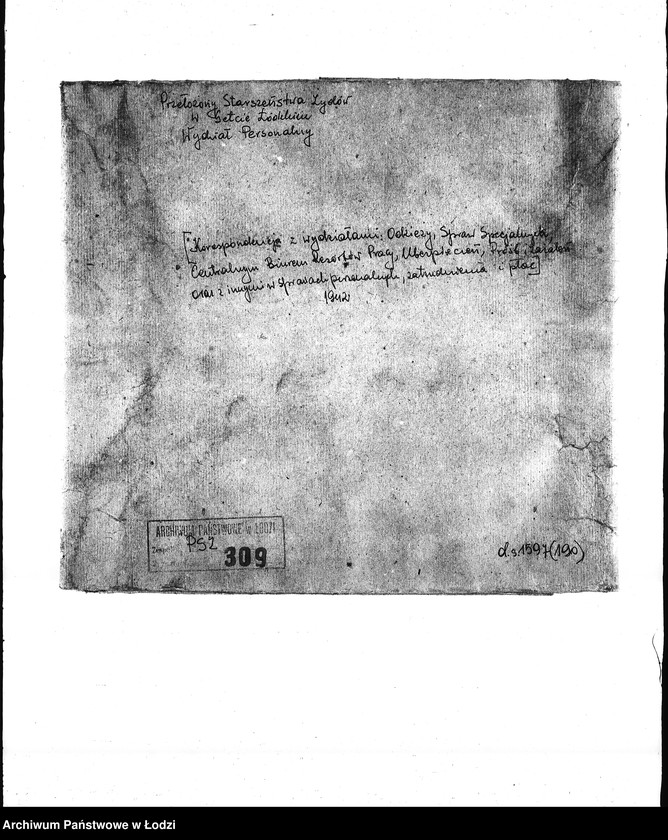 Przełożony Starszeństwa Żydów
w Getcie Łódzkiem
Wydział Personalny
[Korespondencja z wydziałami: Odzieży, Spraw Specjalnych,
Centralnym Biurem Resortów Pracy, Ubezpieczeń, Próśb i Zażaleń
oraz z innymi w sprawach personalnych, zatrudnienia i płac]
1942
ARCHIWUM PAŃSTWOWE w ŁODZI
PSŻ
309
d.s.1597(190)
Archiwum Państwowe w Łodzi